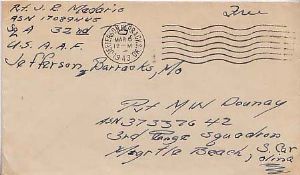 Pvt. J. R. Medaris
ASN 17089445
Sq A 32nd
U.S. A.A.F.
Jefferson Barracks, Mo
Free
JEFFERSON BARRACKS, MO.
MAR 8
12-M
1943
Pvt M W Dounay
ASN 37337642
3rd Range Squadron
Myrtle Beach, S. Car
olina